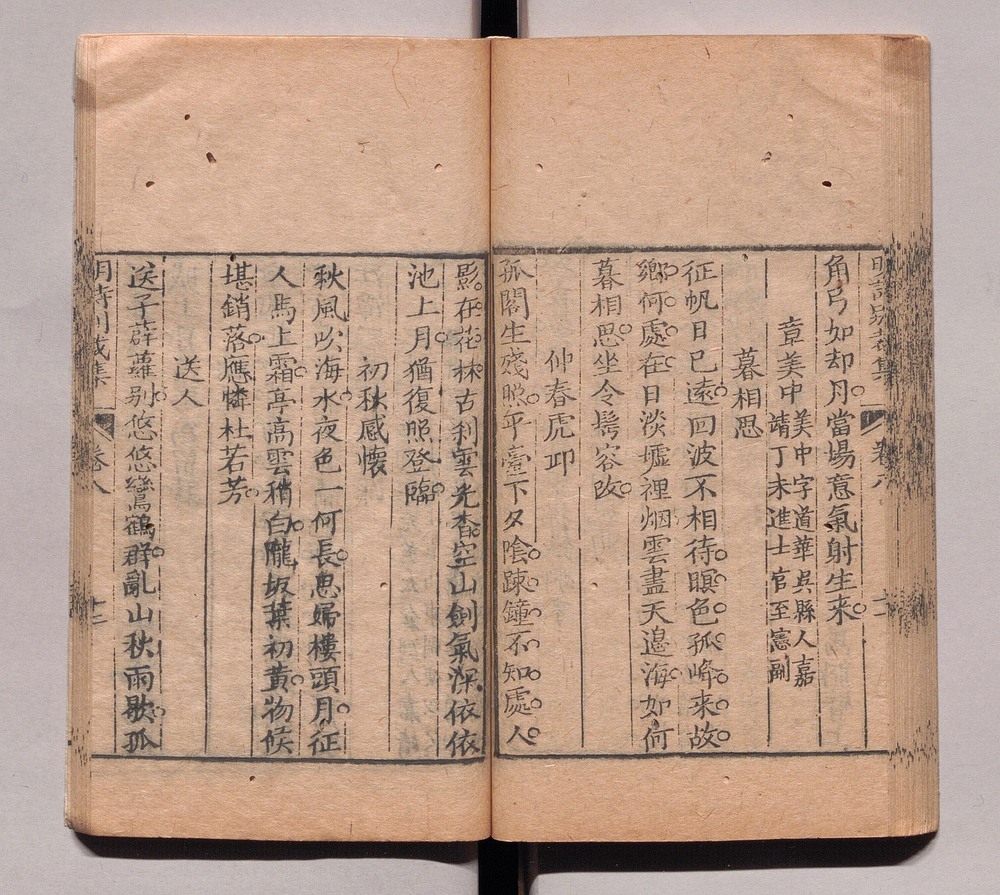 角弓如却月當場意氣射生來
章美中
美中字道華吳縣人嘉
靖丁未進士官至憲副
暮相思
征帆日已遠回波不相待暝色孤峰来故
鄉何處在日淡墟裡烟雲盡天邉海如何
暮相思坐令髩容改
仲春虎邱
孤閣生殘照平臺下夕陰踈鐘不知處人
影在花林古刹雲光杳空山劍氣深依依
池上月猶復照登臨
初秋感懷
秋風吹海水夜色一何長思婦樓頭月征
人馬上霜亭高雲稍白隴坂葉初黃物候
堪銷落應憐杜若芳
送人
送子薜蘿别悠悠鸞鶴群亂山秋雨歇孤
卷八
十三